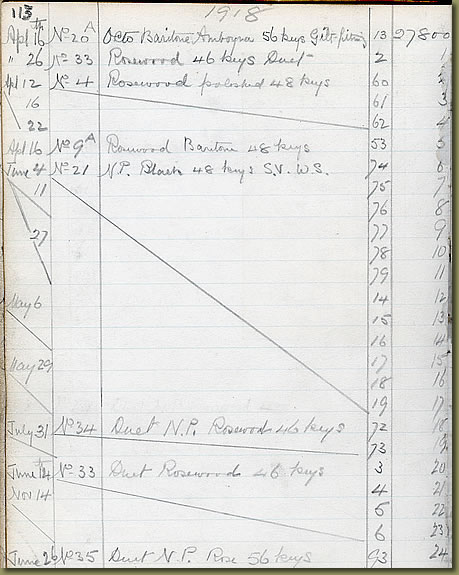 113 1918
Apl 16th No 20A Octo Baritone Amboyna 56 keys Gilt fittings 13 27800
" 26 No 33 Rosewood 46 keys Duet 2 1
Apl 12 No 4 Rosewood polished 48 keys 60 2
16 61 3
22 62 4
Apl 16 No 9A Rosewood Baritone 48 keys 53 5
June 4 No 21 N.P. Black 48 keys S.V. W.S. 74 6
11 75 7
76 8
27 77 9
78 10
79 11
May 6 14 12
15 13
16 14
May 29 17 15
18 16
19 17
July 31 No 34 Duet N.P. Rosewood 46 keys 72 18
73 19
June 14th No 33 Duet Rosewood 46 keys 3 20
Nov 14 4 21
5 22
6 23
June 26 No 35 Duet N.P. Rose 56 keys 93 24